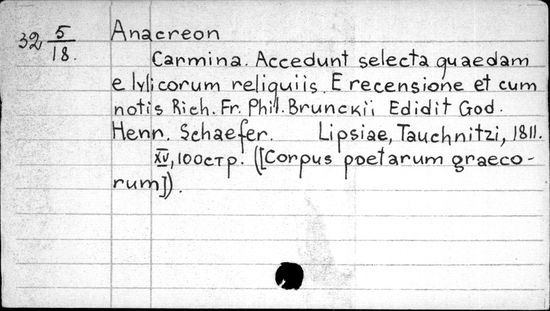 32 5/18. Anacreon
Carmina. Accedunt selecta quaedam
e lylicorum reliquiis. E recensione et cum
notis Rich. Fr. Phil. Brunckii Edidit God.
Henr. Schaefer. Lipsiae, Tauchnitzi, 1811.
XV, 100стр. ([Corpus poetarum graeco-
rum]).